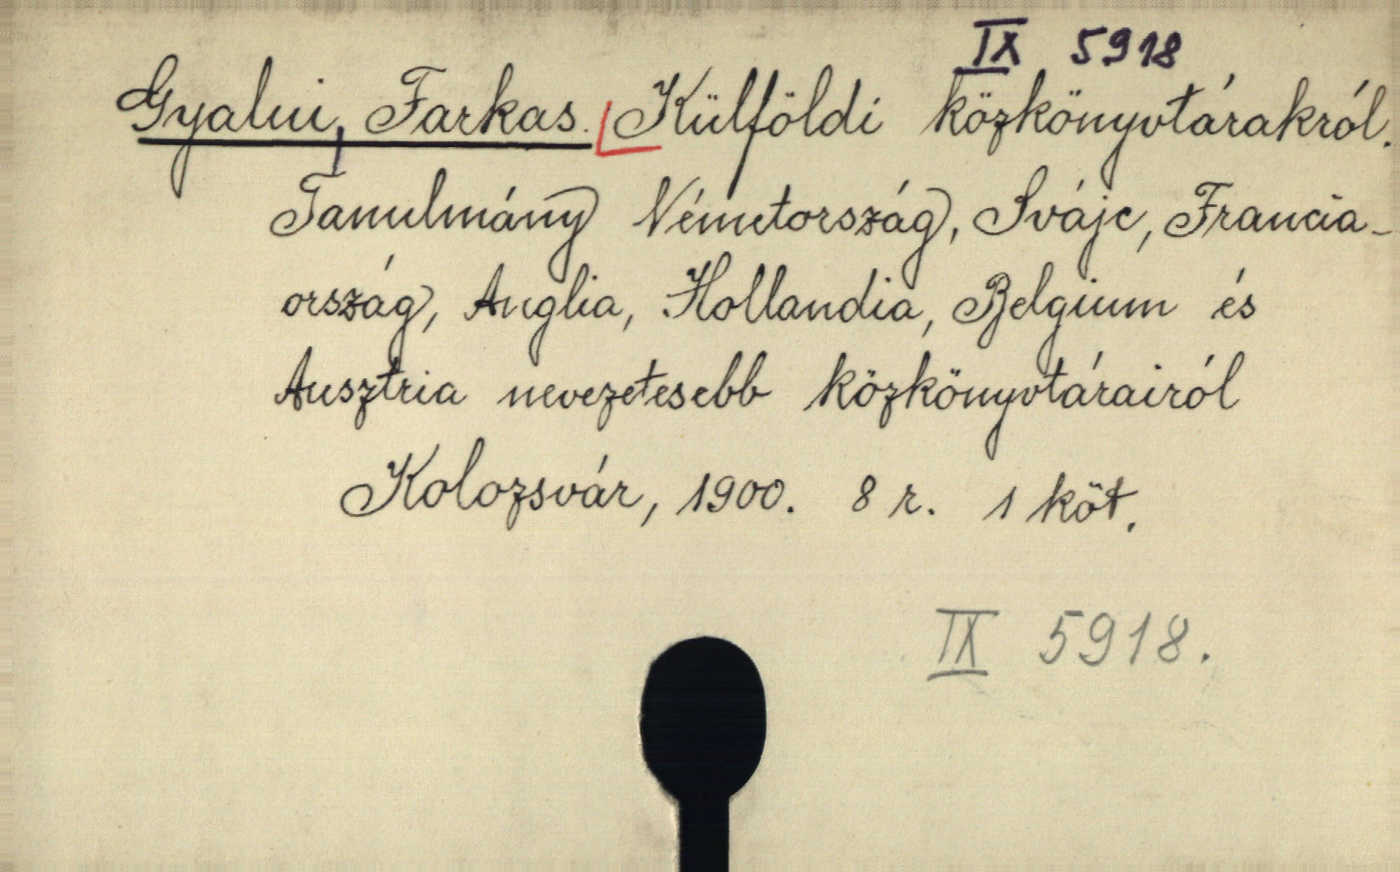 IX 5918
Gyalui, Farkas. Külföldi közkönyvtárakról.
Tanulmány Németország, Svájc, Francia-
ország, Anglia, Hollandia, Belgium és
Ausztria nevezetesebb közkönyvtárairól
Kolozsvár, 1900. 8 r. 1 köt.
IX 5918.